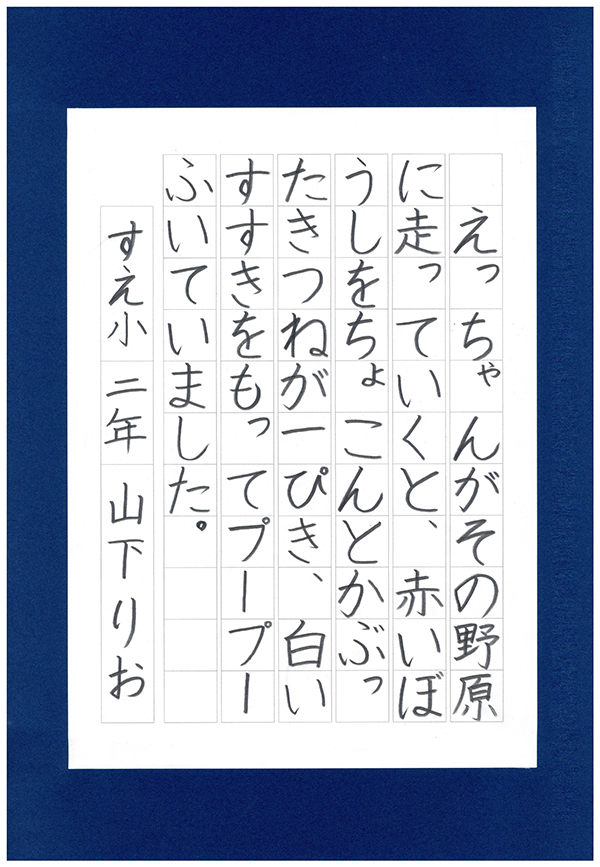 えっちゃんがその野原
に走っていくと、赤いぼ
うしをちょこんとかぶっ
たきつねが一ぴき、白い
すすきをもってプープー
ふいていました。
すえ小 二年 山下りお